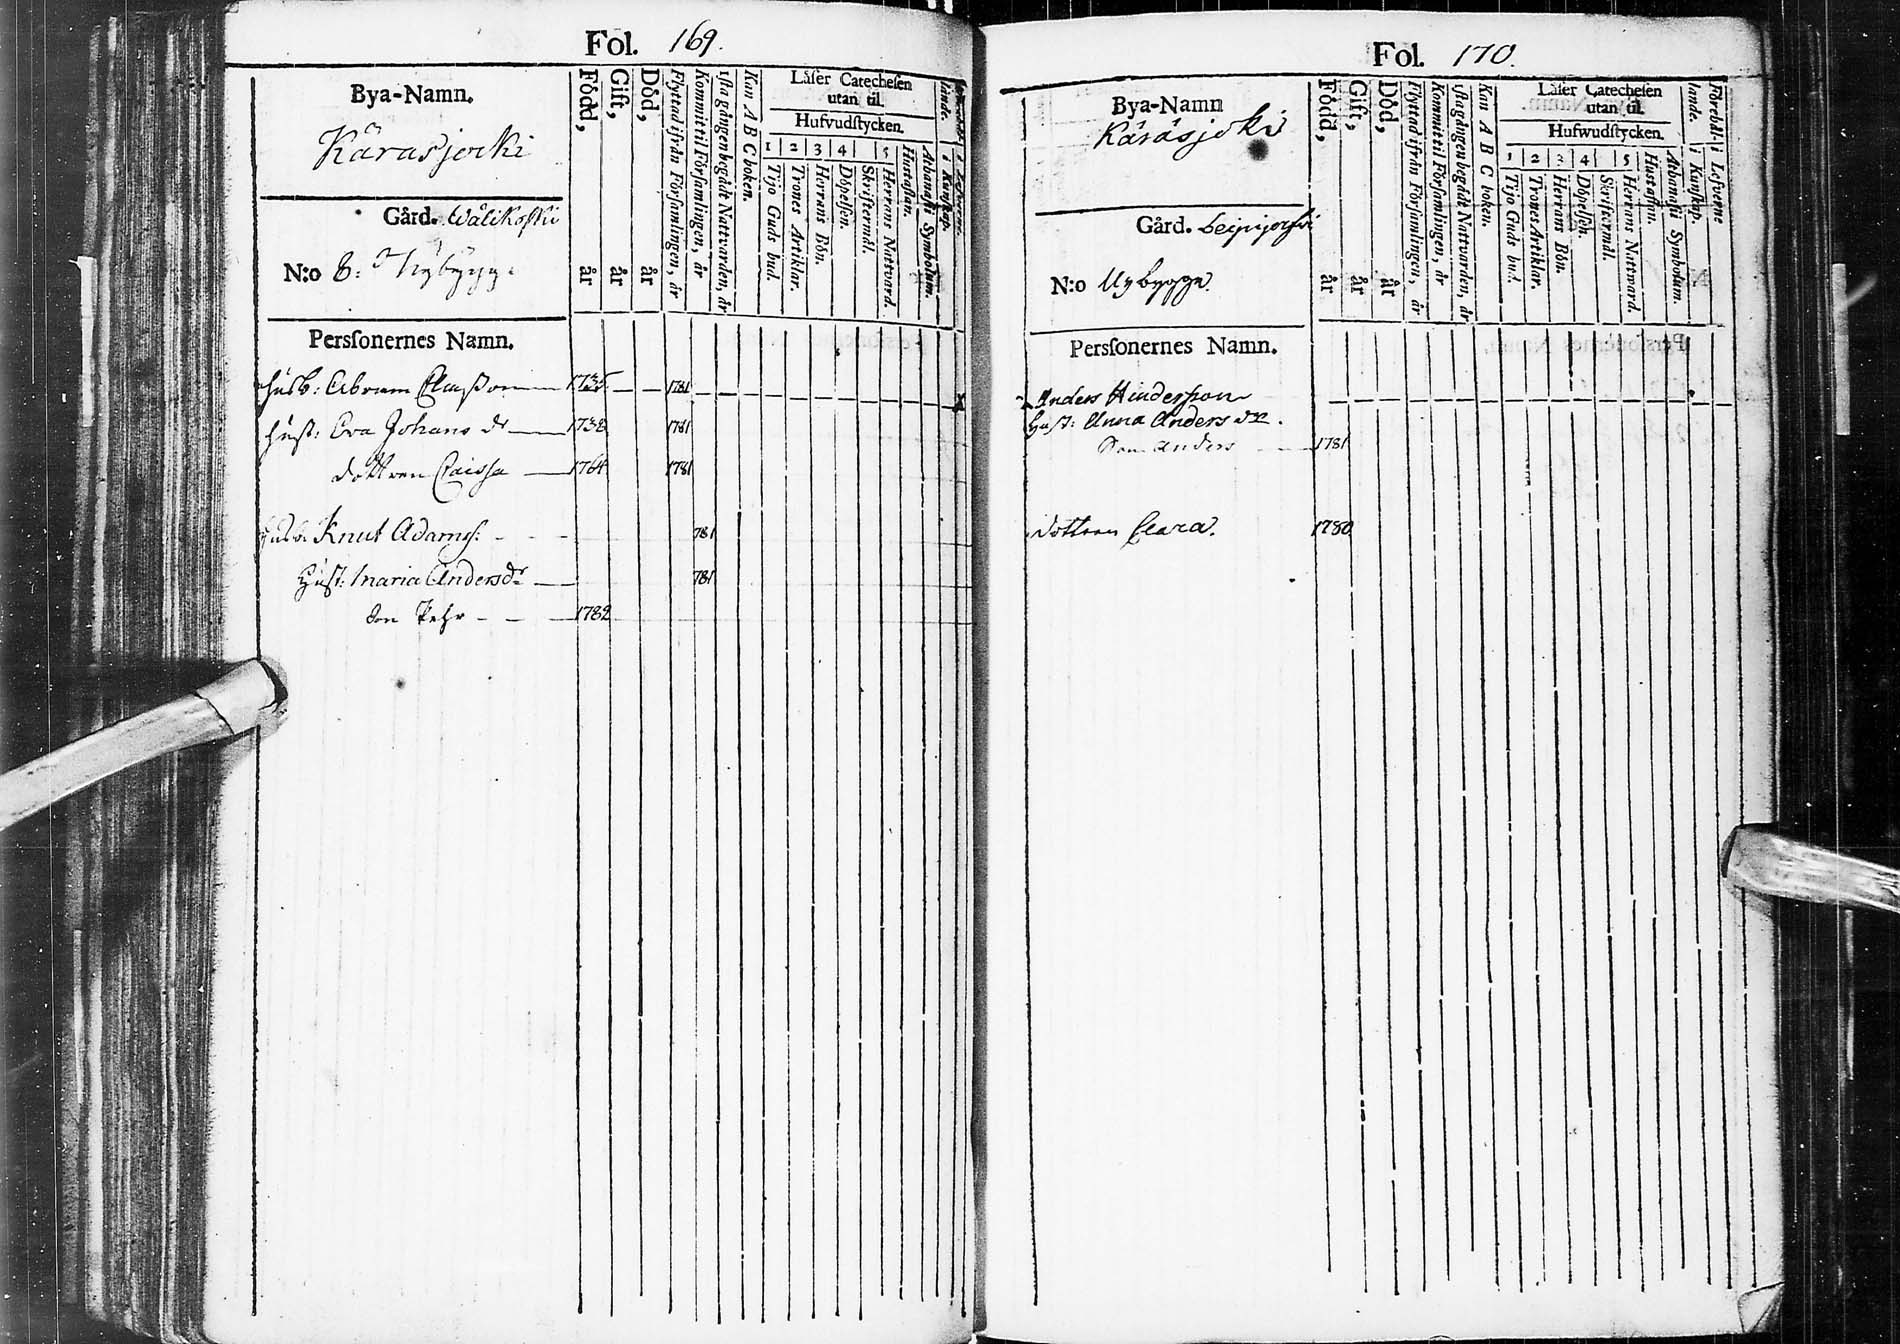 Fol. 169.
Bya-Namn.
Kärasjocki
Gård. Wälikoski
N:o 8: Nÿbÿgge
Född, år
Gift, år
Död, år
Flyttad ifrån Församlingen, år
Kommit til Församlingen, år
1sta gången begådt Nattvarden, år
Kan A B C boken.
Låser Catechesen
utan til.
Hufvudstycken.
1 2 3 4 5
Tijo Guds bud.
Trones Artiklar.
Herrans Bön.
Döpelsen.
Skriftermål.
Herrans Nattvard.
Hustaflan.
Athanasii Symbolum.
i Kunskap.
Personernes Namn.
Husb: Abram 1735 1781
Hust: Eva Johans dr 1738 1781
dottren Caisa 1764 1781
Husb: Knut Adams: 781
Hust: Maria Andersdr 781
Son Pehr 1782
Fol. 170.
Bya-Namn
Käräsjoki
Gård.
N:o Nybygge.
Född, år
Gift, år
Död, år
Flyttad ifrån Församlingen, år
Kommit til Församlingen, år
1sta gången begådt Nattvarden, år
Kan A B C boken.
Låser Catechesen
utan til.
Hufwudstycken.
1 2 3 4 5
Tijo Guds bud.
Trones Artiklar.
Herrans Bön.
Döpelsen.
Skriftermål.
Herrans Nattvard.
Hustaflan.
Athanasii Symbolum.
i Kunskap.
i Lefverne
Personernes Namn.
Anders Hindersson
Hust: Anna Anders dr.
Son Anders 1781
dottren Clara. 1780